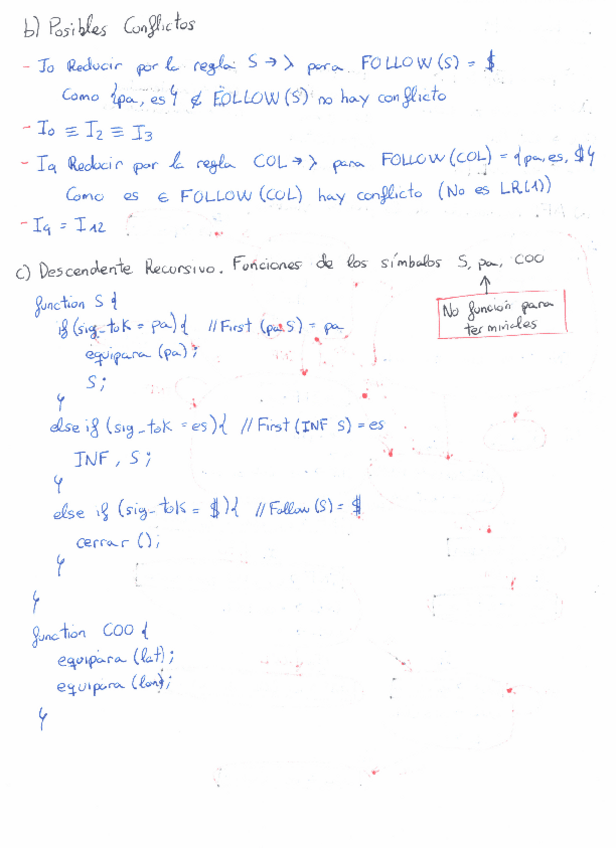 b) Posibles Conflictos
- I0 Reducir por la regla S → λ para FOLLOW(S) = $
Como {pa, es} ∉ FOLLOW(S) no hay conflicto
- I0 ≡ I2 ≡ I3
- I9 Reducir por la regla COL → λ para FOLLOW(COL) = {pa, es, $}
Como es ∈ FOLLOW(COL) hay conflicto (No es LR(1))
- I9 = I12
c) Descendente Recursivo. Funciones de los símbolos S, pa, COO
No función para
terminales
function S {
if (sig_tok = pa) { // First (pa S) = pa
equipara (pa);
S;
}
else if (sig_tok = es) { // First (INF S) = es
INF, S;
}
else if (sig_tok = $) { // Follow (S) = $
cerrar ();
}
}
function COO {
equipara (lat);
equipara (lon);
}